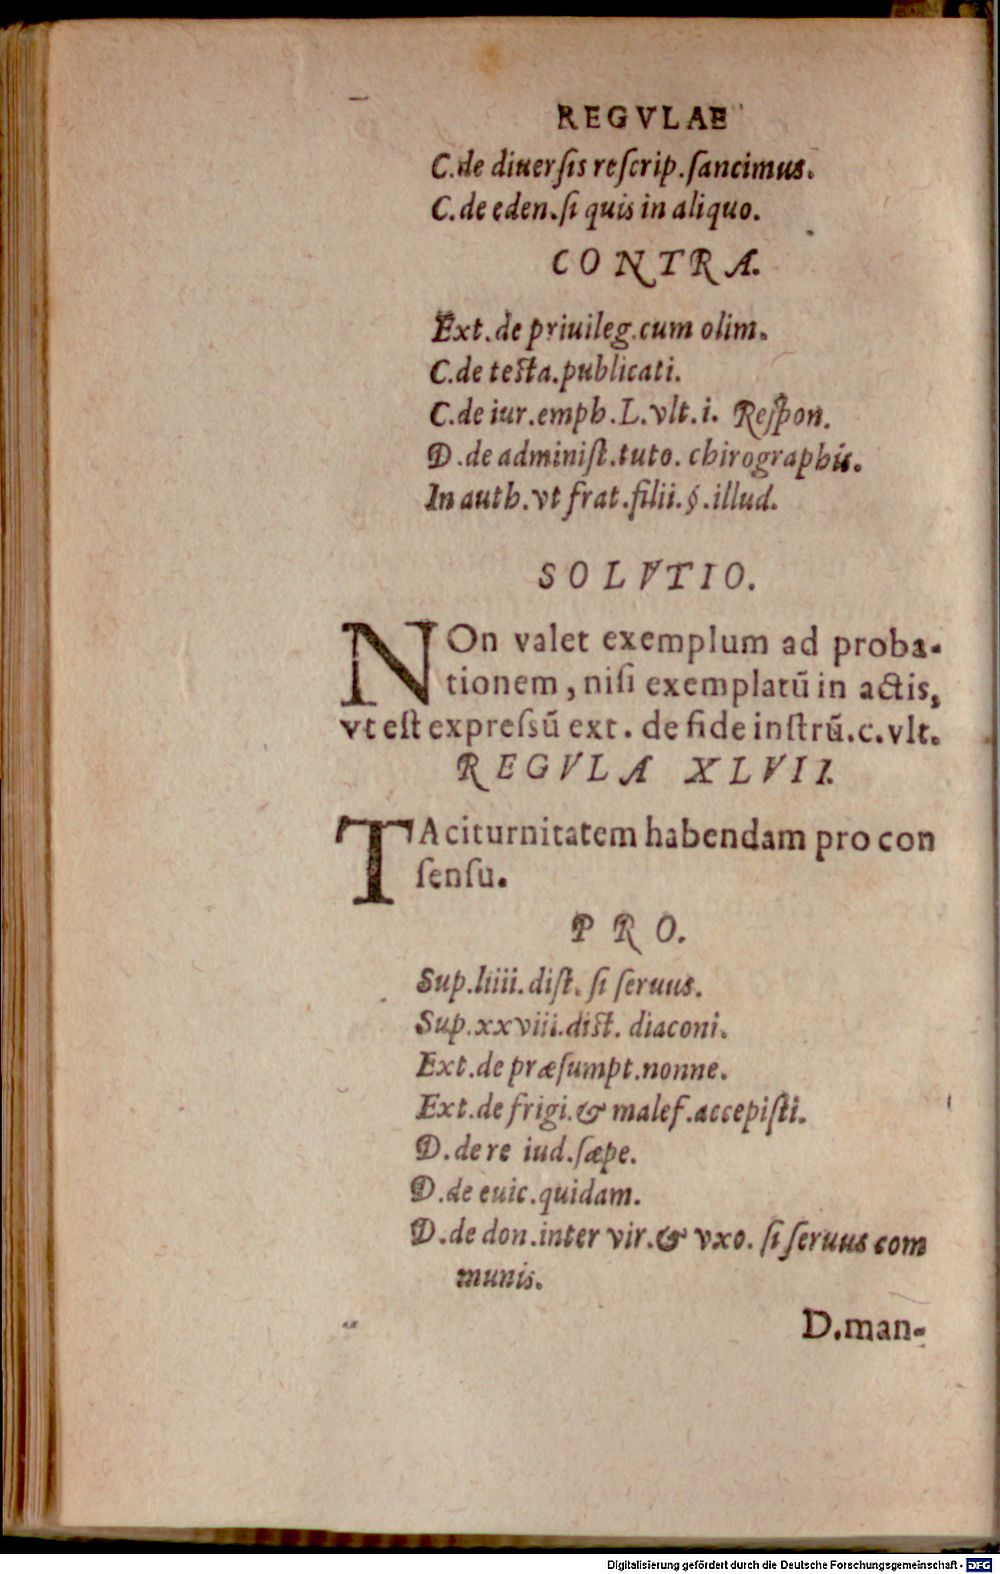 REGVLAE
C.de diuerſis reſcrip.ſancimus.
C.de eden.ſi quis in aliquo.
CONTRA.
Ext.de priuileg.cum olim.
C.de teſta.publicati.
C.de iur.emph.L.vlt.i. Reſpon.
D.de adminiſt.tuto. chirographis.
In auth.vt frat.filii.§.illud.
SOLVTIO.
NOn valet exemplum ad proba-
tionem, niſi exemplatũ in actis,
vt eſt expreſsũ ext. de fide inſtrũ.c.vlt.
REGVLA XLVII.
TAciturnitatem habendam pro con
ſenſu.
PRO.
Sup.liiii.diſt. ſi ſeruus.
Sup.xxviii.diſt. diaconi.
Ext.de præſumpt.nonne.
Ext.de frigi.& malef.accepiſti.
D.de re iud.ſæpe.
D.de euic.quidam.
D.de don.inter vir.& vxo. ſi ſeruus com
munis.
D.man-
Digitalisierung gefördert durch die Deutsche Forschungsgemeinschaft - DFG